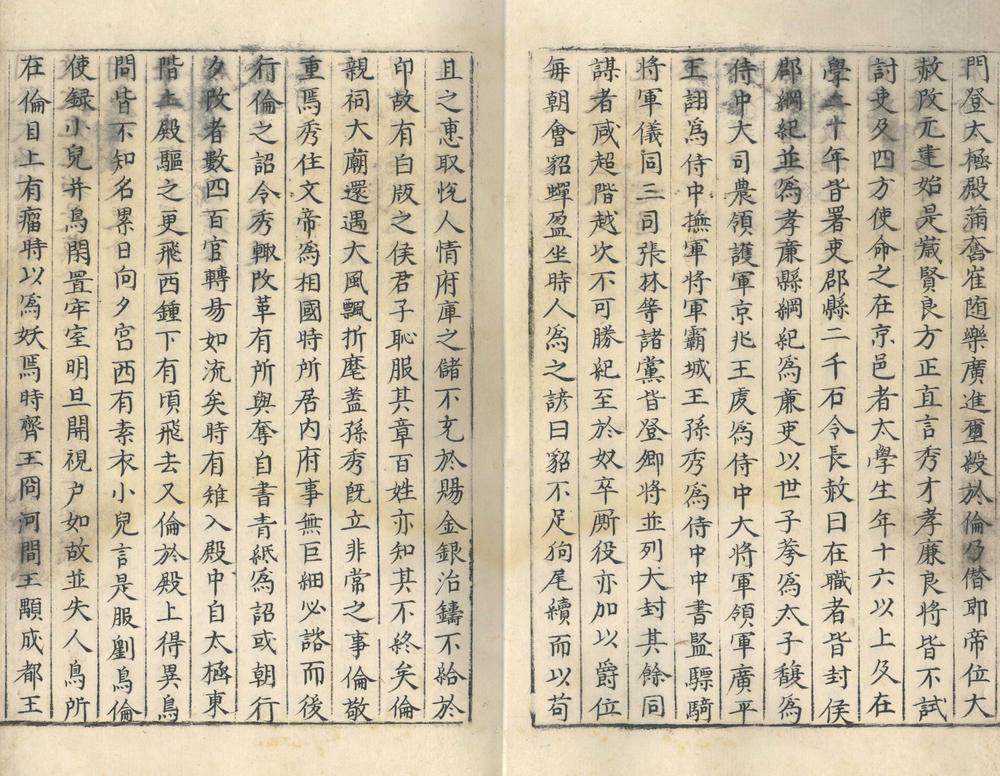 門登太極殿滿奮崔随樂廣進璽綬於倫乃僣即帝位大
赦改元建始是嵗賢良方正直言秀才孝廉良将皆不試
討吏及四方使命之在京邑者太學生年十六以上及在
學二十年皆署吏郡縣二千石令長赦曰在職者皆封侯
郡綱紀並爲孝廉縣綱紀爲廉吏以世子荂爲太子馥爲
侍中大司農領護軍京兆王虔爲侍中大将軍領軍廣平
王詡爲侍中撫軍将軍霸城王孫秀爲侍中中書監驃騎
将軍儀同三司張林等諸黨皆登卿将並列大封其餘同
謀者咸超階越次不可勝紀至於奴卒厮役亦加以爵位
每朝會貂蟬盈坐時人爲之諺曰貂不足狗尾續而以苟
且之恵取悅人情府庫之儲不充於賜金銀冶鑄不給於
印故有白版之侯君子恥服其章百姓亦知其不終矣倫
親祠大廟還遇大風飄折麾蓋孫秀旣立非常之事倫敬
重焉秀住文帝爲相國時所居内府事無巨細必諮而後
行倫之詔令秀輙改革有所與奪自書青紙爲詔或朝行
夕改者數四百官轉易如流矣時有雉入殿中自太極東
階上殿驅之更飛西鍾下有頃飛去又倫於殿上得異鳥
問皆不知名累日向夕宫西有素衣小兒言是服劉鳥倫
使録小兒并鳥閑置牢室明旦開視户如故並失人鳥所
在倫目上有瘤時以爲妖焉時齊王冏河間王顒成都王